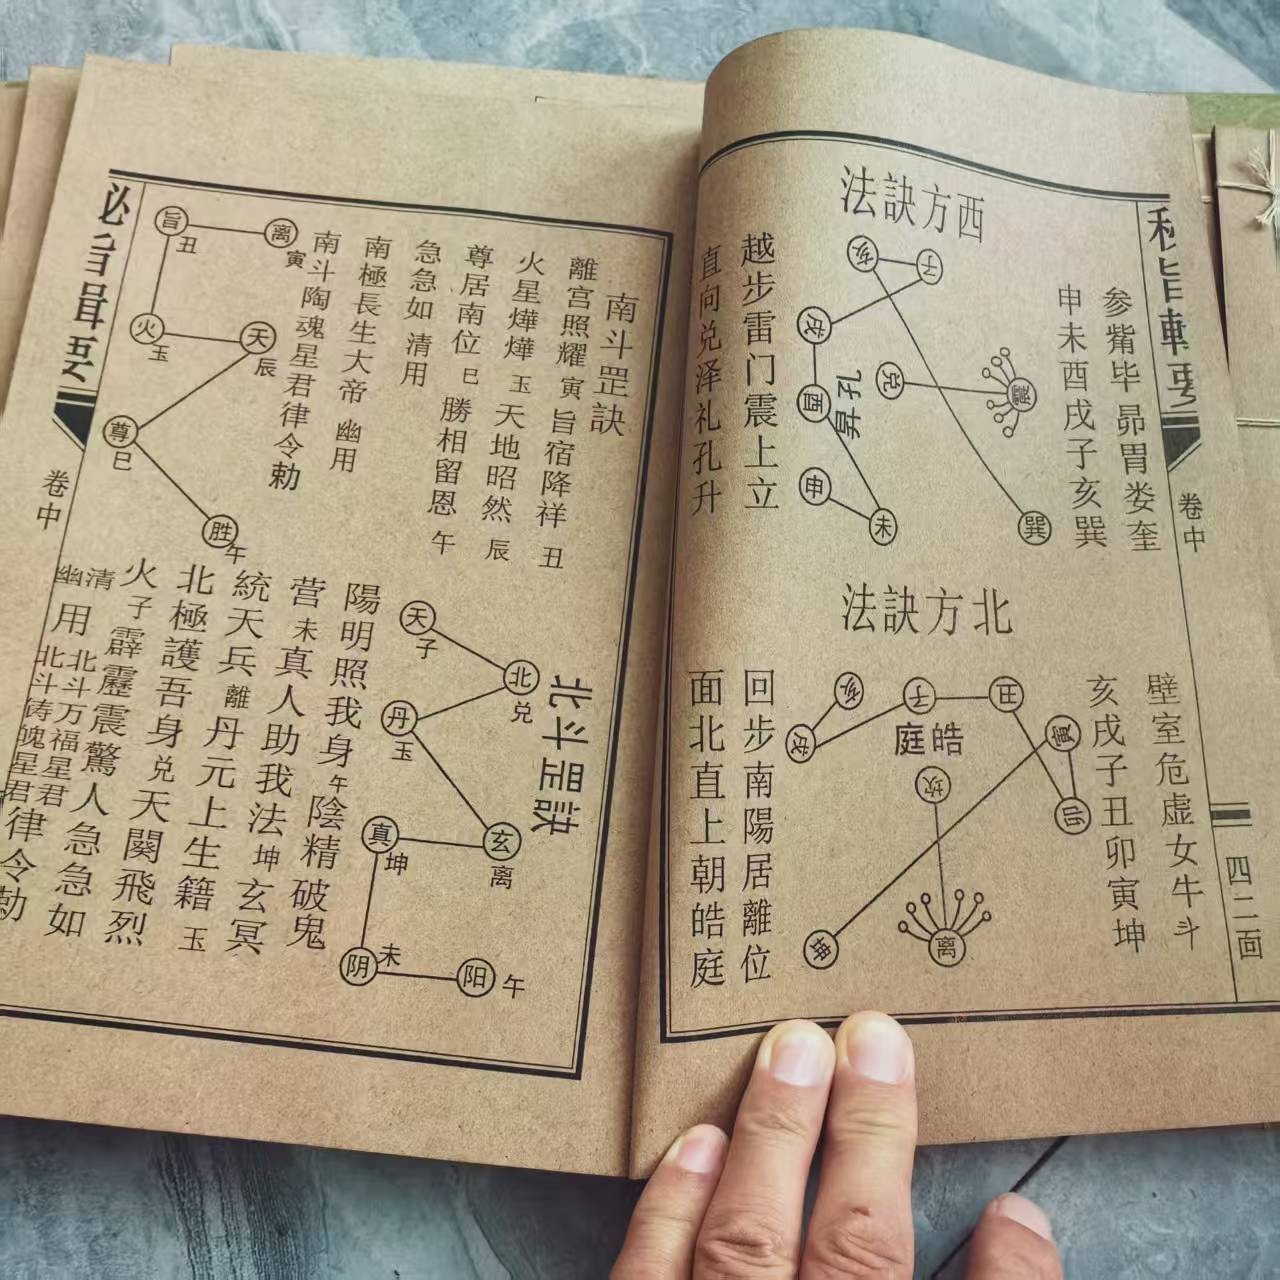 卷中
四二面
西方訣法
参觜毕昴胃娄奎
申未酉戌子亥巽
亥
子
戌
酉
兑
震
昇孔
申
未
巽
越步雷门震上立
直向兑泽礼孔升
北方訣法
壁室危虚女牛斗
亥戌子丑卯寅坤
亥
子
丑
寅
戌
皓庭
坎
卯
坤
离
回步南陽居離位
面北直上朝皓庭
南斗罡訣
離宫照耀寅旨宿降祥丑
火星燁燁玉天地昭然辰
尊居南位巳勝相留恩午
急急如清用
南極長生大帝幽用
南斗陶魂星君律令勅
旨丑
离寅
火玉
天辰
尊巳
胜午
北斗罡訣
天子
北兑
丹玉
玄离
真坤
阴未
阳午
陽明照我身午陰精破鬼
营未真人助我法坤玄冥
統天兵離丹元上生籍玉
北極護吾身兑天関飛烈
火子霹靂震驚人急急如
清用北斗万福星君
幽用北斗铸魄星君
律令勅
卷中